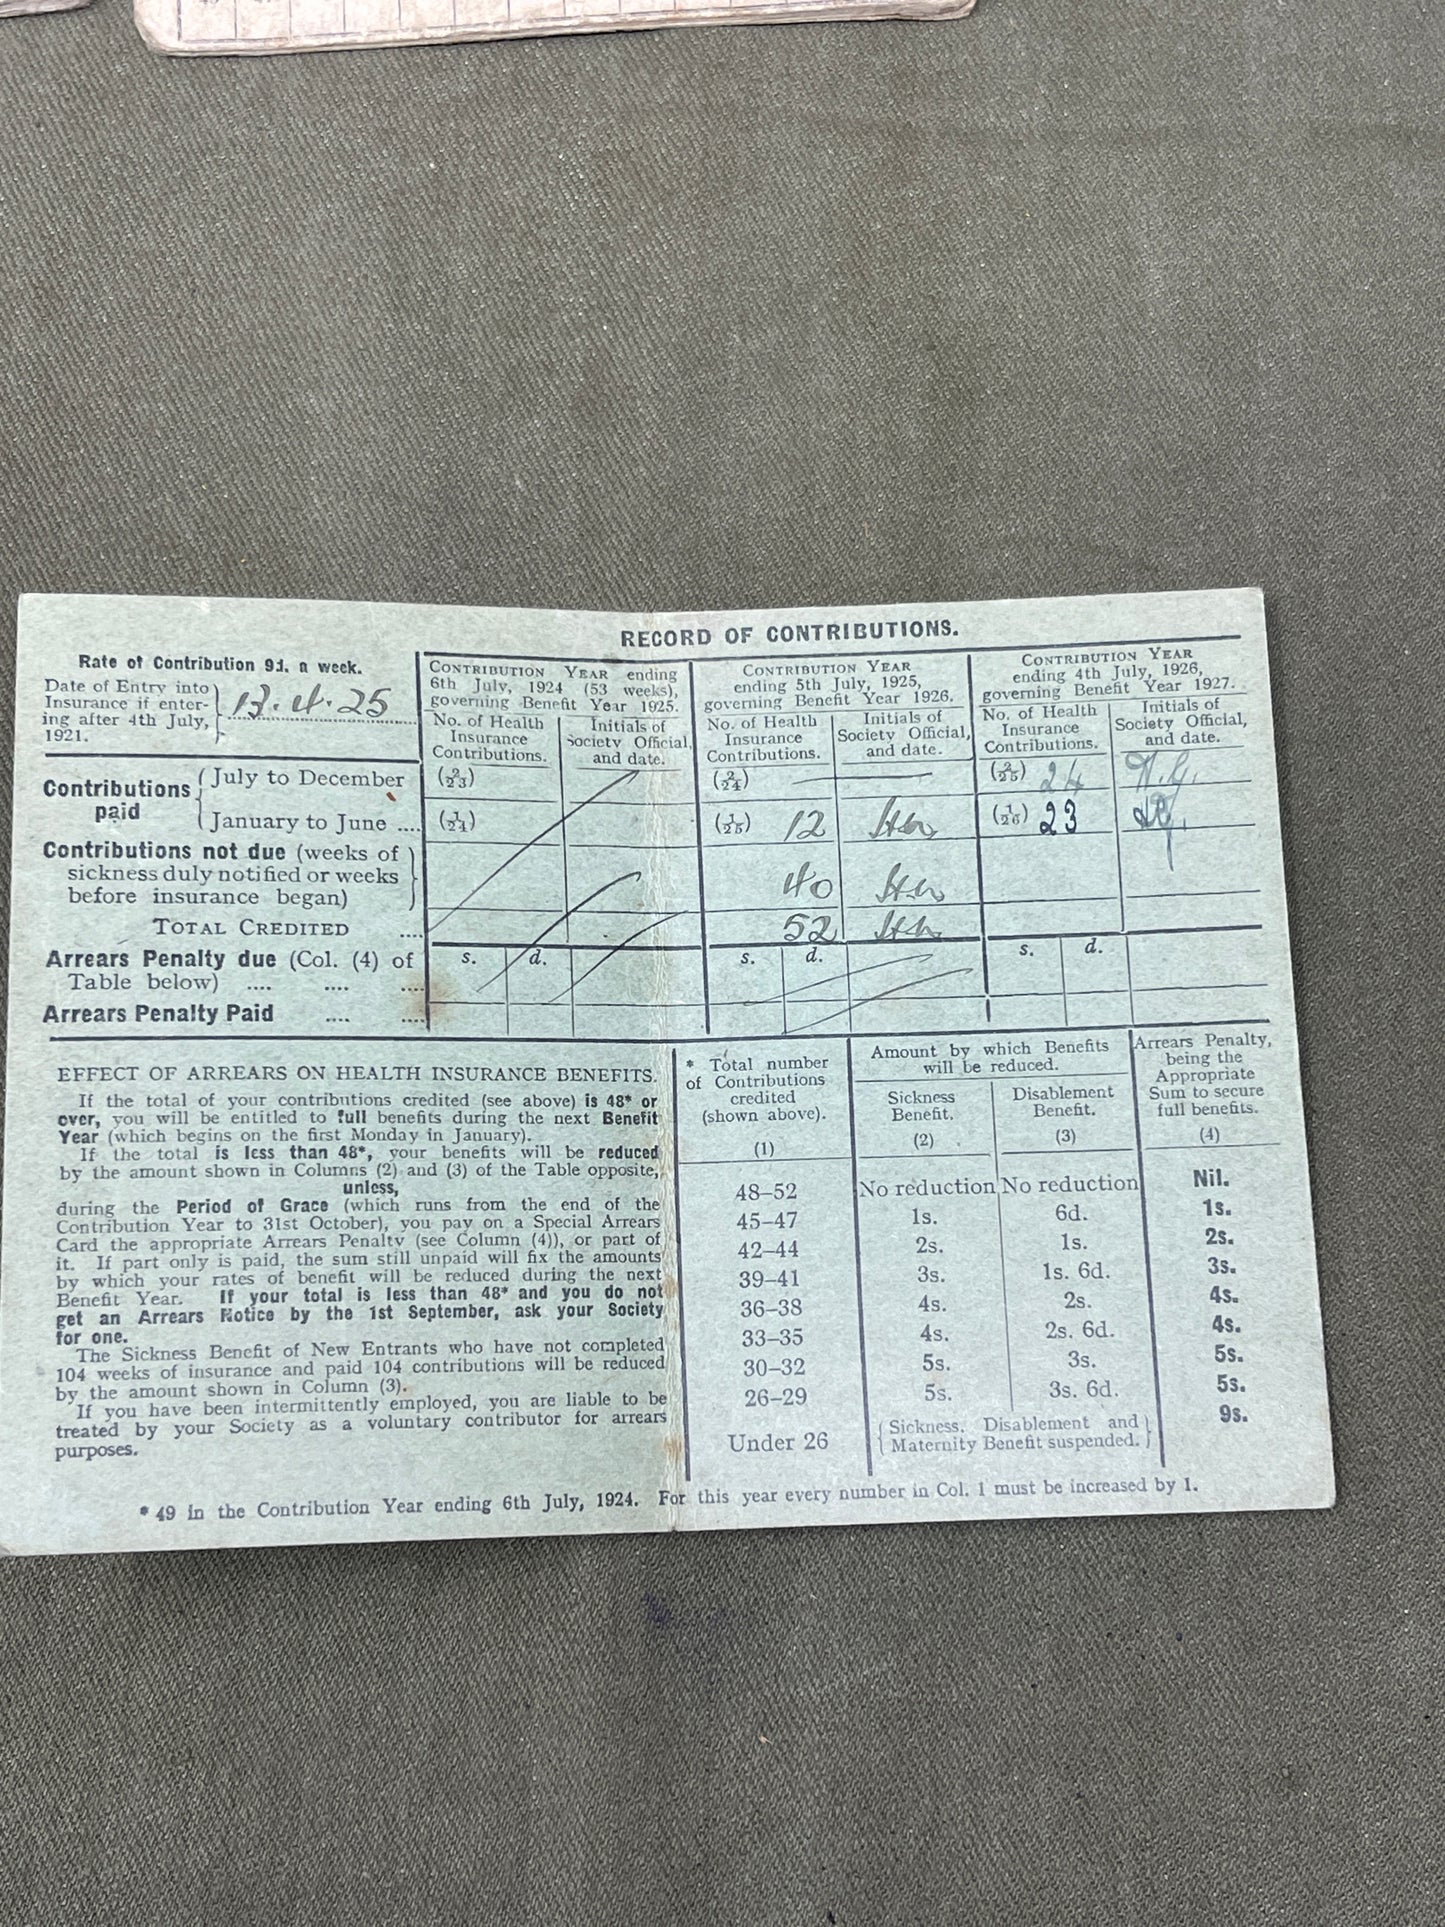 RECORD OF CONTRIBUTIONS.
Rate of Contribution 9d. a week.
Date of Entry into
Insurance if enter-
ing after 4th July,
1921.
13.4.25
CONTRIBUTION YEAR ending
6th July, 1924 (53 weeks),
governing Benefit Year 1925.
No. of Health
Insurance
Contributions.
Initials of
Society Official,
and date.
CONTRIBUTION YEAR
ending 5th July, 1925,
governing Benefit Year 1926.
No. of Health
Insurance
Contributions.
Initials of
Society Official,
and date.
CONTRIBUTION YEAR
ending 4th July, 1926,
governing Benefit Year 1927.
No. of Health
Insurance
Contributions.
Initials of
Society Official,
and date.
Contributions paid
July to December (2/23) (2/24) (2/25) 24
January to June .... (1/24) (1/25) 12 (1/26) 23
Contributions not due (weeks of
sickness duly notified or weeks
before insurance began)
40
TOTAL CREDITED .... 52
Arrears Penalty due (Col. (4) of s. d. s. d. s. d.
Table below) .... .... ....
Arrears Penalty Paid .... ....
EFFECT OF ARREARS ON HEALTH INSURANCE BENEFITS.
If the total of your contributions credited (see above) is 48* or
over, you will be entitled to full benefits during the next Benefit
Year (which begins on the first Monday in January).
If the total is less than 48*, your benefits will be reduced
by the amount shown in Columns (2) and (3) of the Table opposite,
unless,
during the Period of Grace (which runs from the end of the
Contribution Year to 31st October), you pay on a Special Arrears
Card the appropriate Arrears Penalty (see Column (4)), or part of
it. If part only is paid, the sum still unpaid will fix the amounts
by which your rates of benefit will be reduced during the next
Benefit Year. If your total is less than 48* and you do not
get an Arrears Notice by the 1st September, ask your Society
for one.
The Sickness Benefit of New Entrants who have not completed
104 weeks of insurance and paid 104 contributions will be reduced
by the amount shown in Column (3).
If you have been intermittently employed, you are liable to be
treated by your Society as a voluntary contributor for arrears
purposes.
* Total number
of Contributions
credited
(shown above).
(1)
Amount by which Benefits
will be reduced.
Sickness
Benefit.
(2)
Disablement
Benefit.
(3)
Arrears Penalty,
being the
Appropriate
Sum to secure
full benefits.
(4)
48–52 No reduction No reduction Nil.
45–47 1s. 6d. 1s.
42–44 2s. 1s. 2s.
39–41 3s. 1s. 6d. 3s.
36–38 4s. 2s. 4s.
33–35 4s. 2s. 6d. 4s.
30–32 5s. 3s. 5s.
26–29 5s. 3s. 6d. 5s.
Under 26 Sickness, Disablement and 9s.
Maternity Benefit suspended.
* 49 in the Contribution Year ending 6th July, 1924. For this year every number in Col. 1 must be increased by 1.